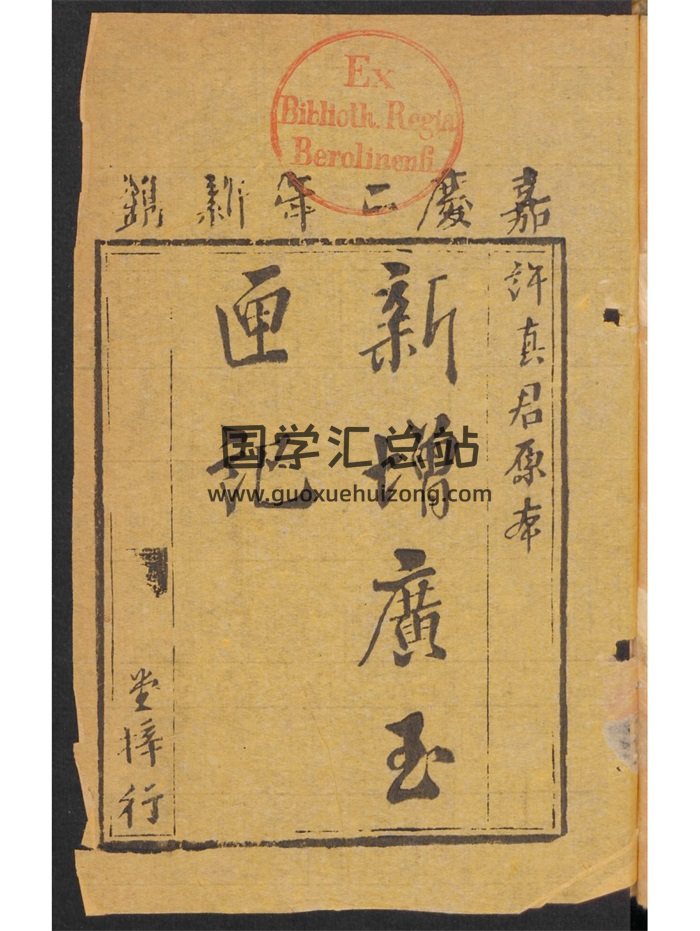 Ex
Biblioth. Regia
Berolinensi.
嘉慶二年新鐫
許真君原本
新增廣玉
匣記
堂梓行
国学汇总站
www.guoxuehuizong.com